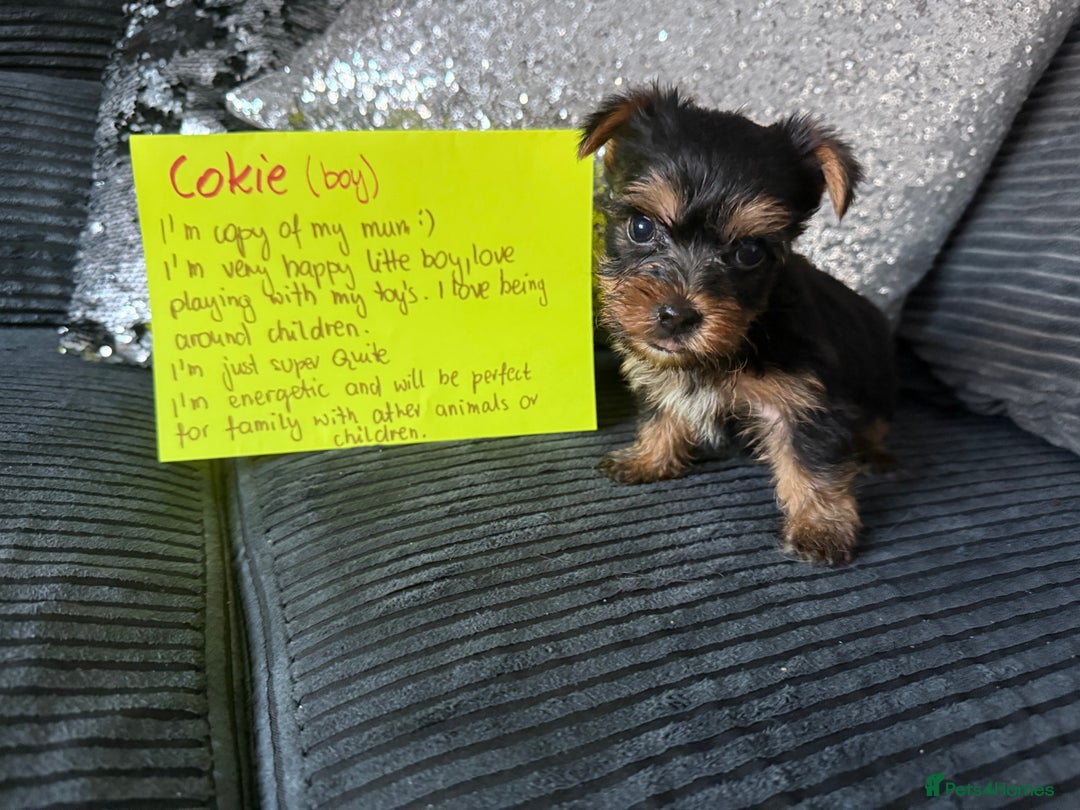 Cokie (boy)
I'm copy of my mum :)
I'm very happy litte boy, love
playing with my toy's. I love being
around children.
I'm just super Quite
I'm energetic and will be perfect
for family with other animals or
children.
Pets4Homes